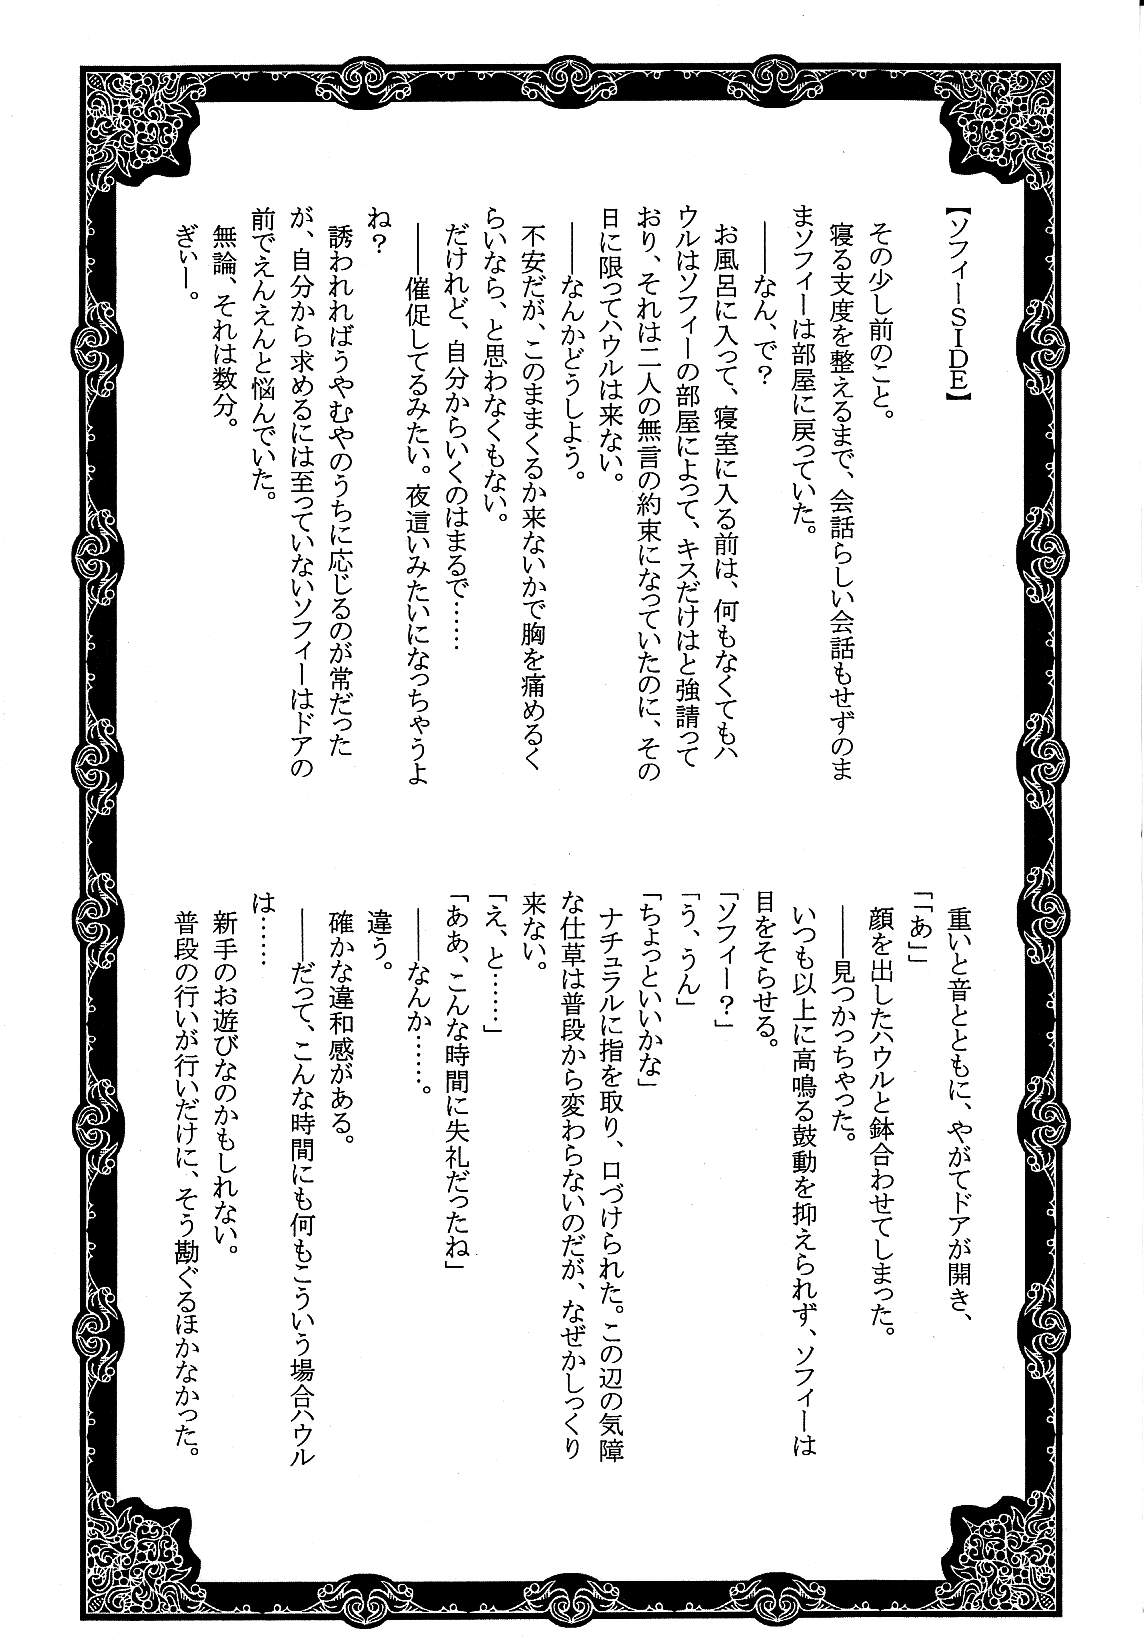 【ソフィーSIDE】
その少し前のこと。
寝る支度を整えるまで、会話らしい会話もせずのま
まソフィーは部屋に戻っていた。
――なん、で？
お風呂に入って、寝室に入る前は、何もなくてもハ
ウルはソフィーの部屋によって、キスだけはと強請って
おり、それは二人の無言の約束になっていたのに、その
日に限ってハウルは来ない。
――なんかどうしよう。
不安だが、このままくるか来ないかで胸を痛めるく
らいなら、と思わなくもない。
だけれど、自分からいくのはまるで……
――催促してるみたい。夜這いみたいになっちゃうよ
ね？
誘われればうやむやのうちに応じるのが常だった
が、自分から求めるには至っていないソフィーはドアの
前でえんえんと悩んでいた。
無論、それは数分。
ぎぃー。
重いと音とともに、やがてドアが開き、
「「あ」」
顔を出したハウルと鉢合わせてしまった。
――見つかっちゃった。
いつも以上に高鳴る鼓動を抑えられず、ソフィーは
目をそらせる。
「ソフィー？」
「う、うん」
「ちょっといいかな」
ナチュラルに指を取り、口づけられた。この辺の気障
な仕草は普段から変わらないのだが、なぜかしっくり
来ない。
「え、と……」
「ああ、こんな時間に失礼だったね」
――なんか……。
違う。
確かな違和感がある。
――だって、こんな時間にも何もこういう場合ハウル
は……
新手のお遊びなのかもしれない。
普段の行いが行いだけに、そう勘ぐるほかなかった。